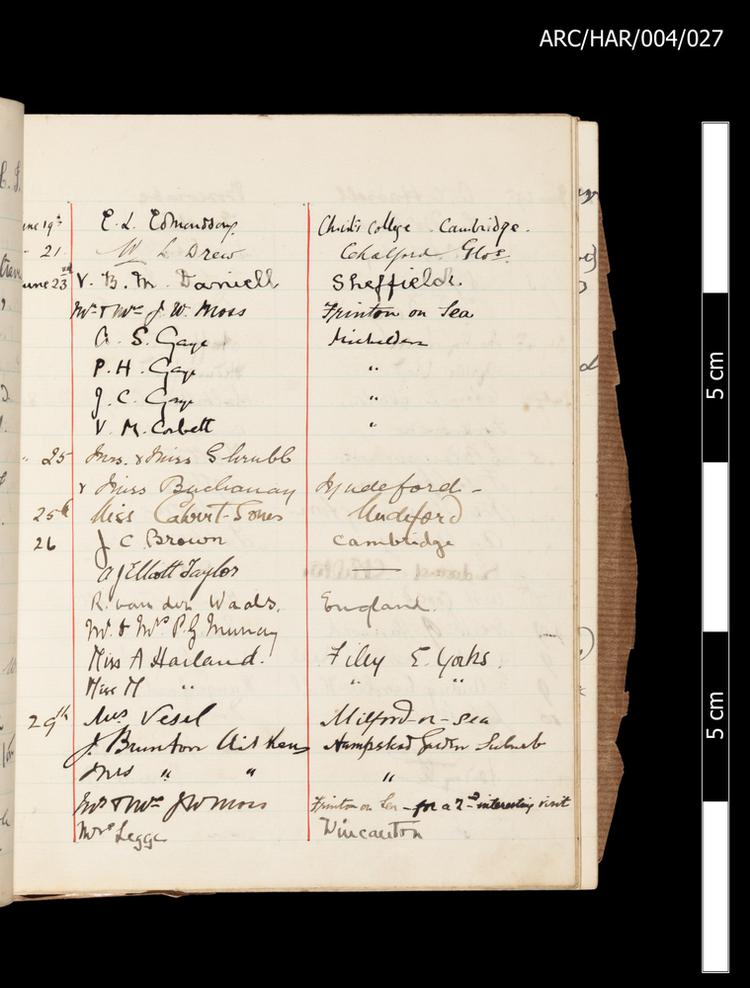 ARC/HAR/004/027
June 19th E. L. Edmundson Christ's College Cambridge.
" 21. W L Drew Chalford. Glos.
June 23rd V. B. M. Daniell Sheffield.
Mr & Mrs J. W. Moss Frinton on Sea
A. S. Gaye Micheldever
P. H. Gaye "
J. C. Gaye "
V. M. Corbett "
" 25 Mrs. & Miss Shrubb
& Miss Buchanan Mudeford -
25th Miss Calvert-Jones Mudeford
26 J C Brown Cambridge
A J Elliott Taylor —
R. van der Waals. England.
Mr. & Mrs P. G Murray
Miss A Harland. Filey E. Yorks.
Miss M " " "
29th Mrs Vesel Milford-on-Sea
J. Brunton Aitkens Hampstead Garden Suburb
Mrs " " "
Mr & Mrs J W Moss Frinton on Sea - for a 2nd interesting visit
Mrs Legge Wincanton
5 cm
5 cm